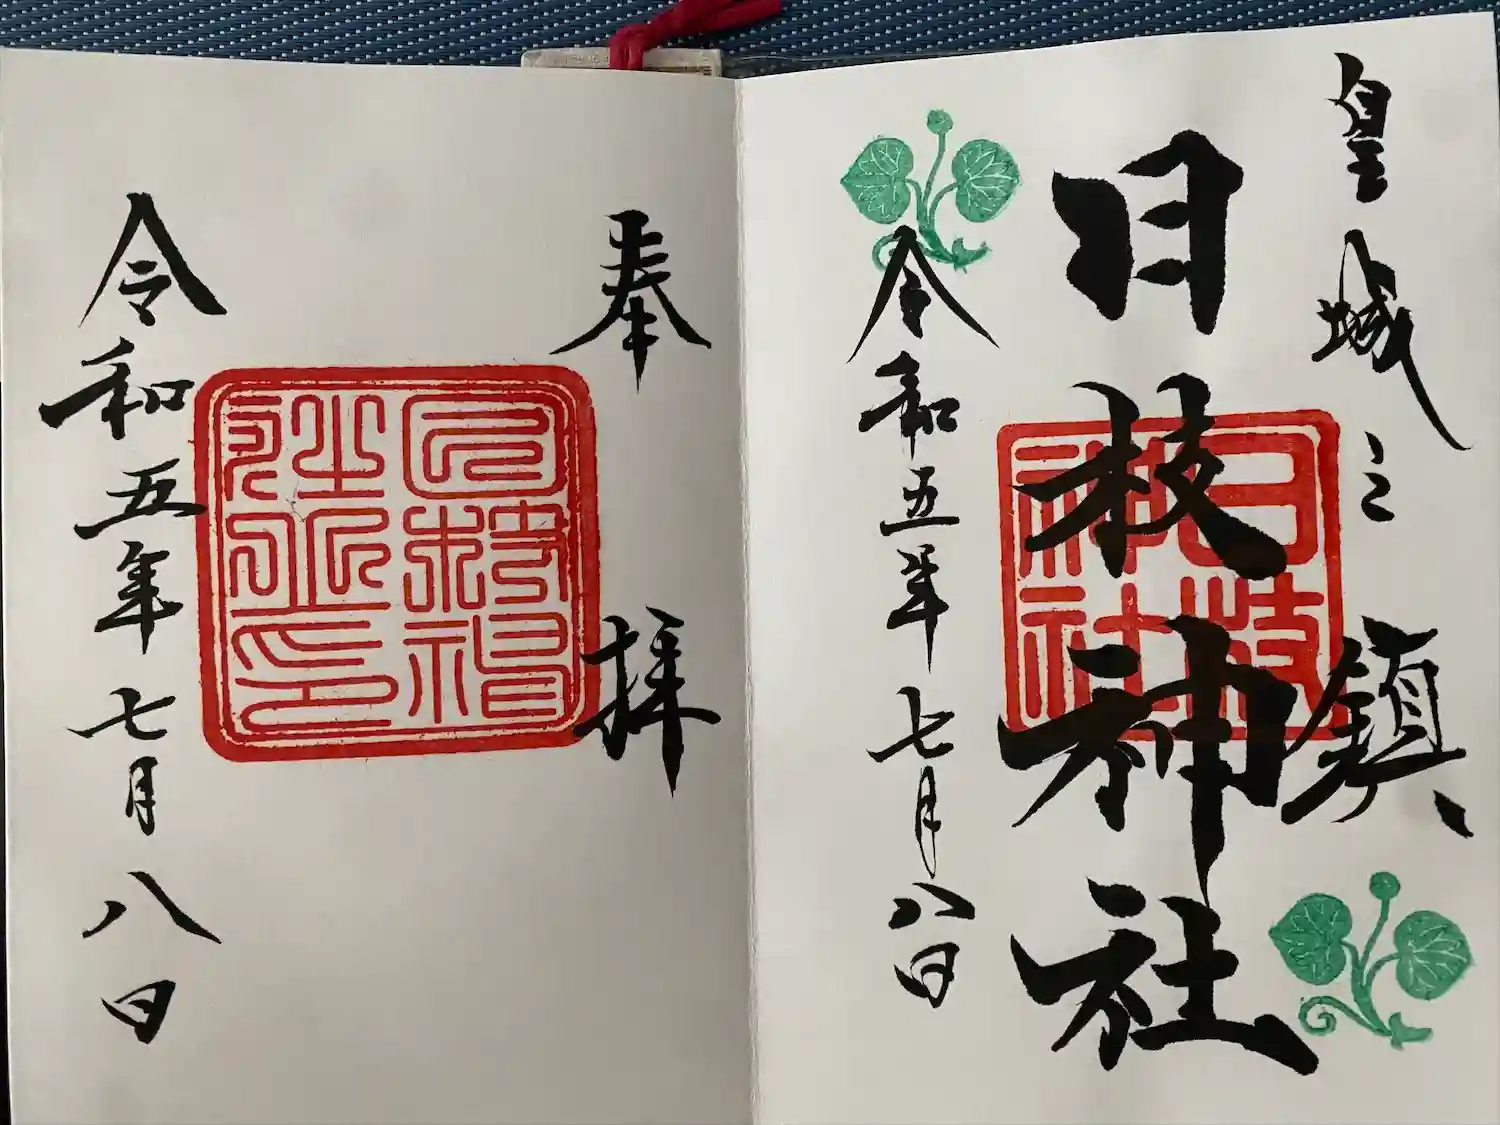 皇城之鎮
日枝神社
日枝神社
令和五年七月八日
奉拝
令和五年七月八日